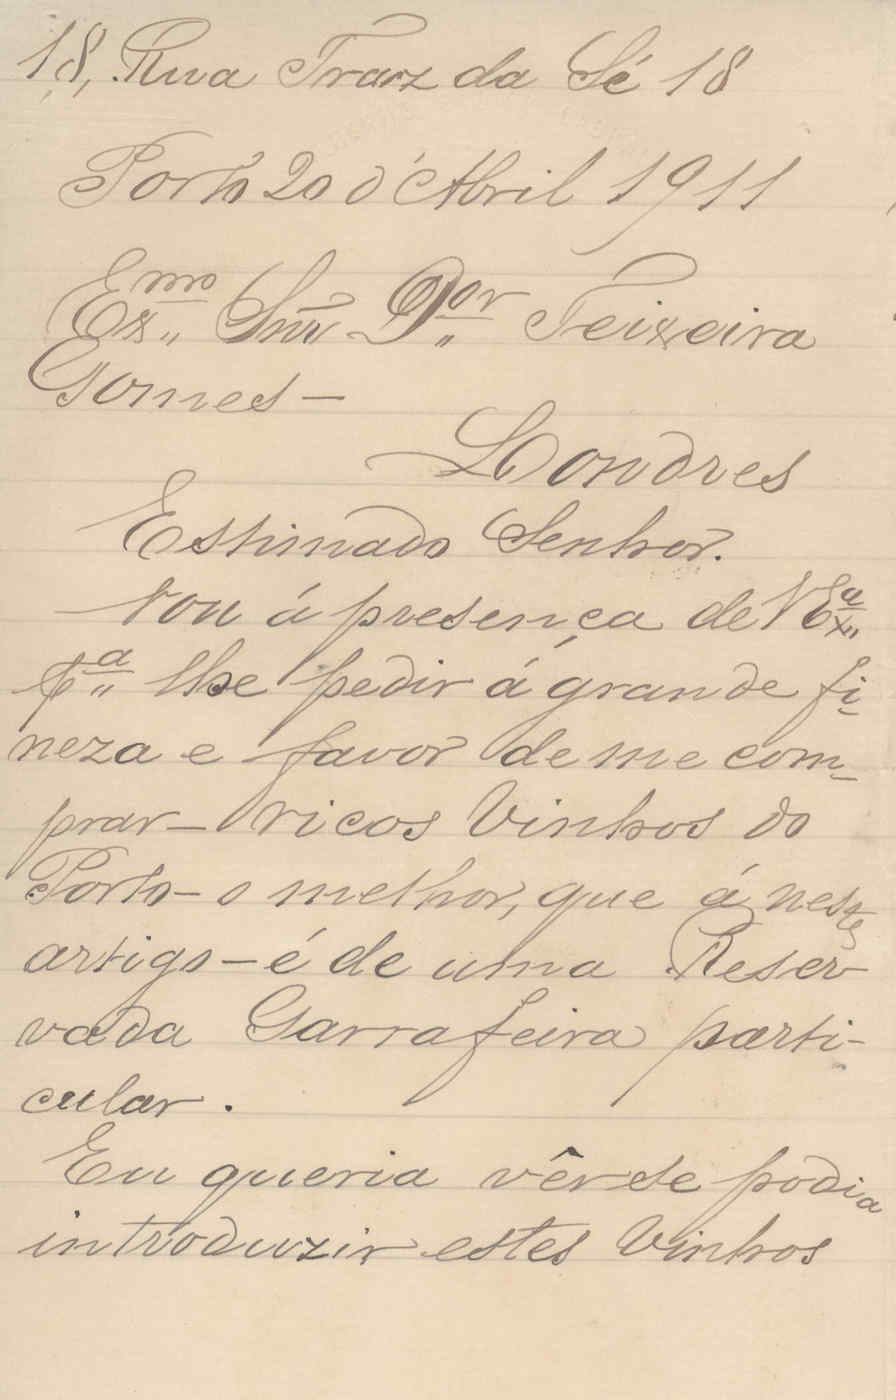 18, Rua Traz da Sé 18
Porto 20 d'Abril 1911
Exmo Snr Dor Teixeira
Gomes —
Londres
Estimado Senhor.
Vou á presença de V Exa
pa lhe pedir á grande fi-
neza e favor de me com-
prar — ricos Vinhos do
Porto — o melhor, que á neste
artigo — é de uma Reser-
vada Garrafeira parti-
cular.
Eu queria vêr se podia
introduzir estes Vinhos